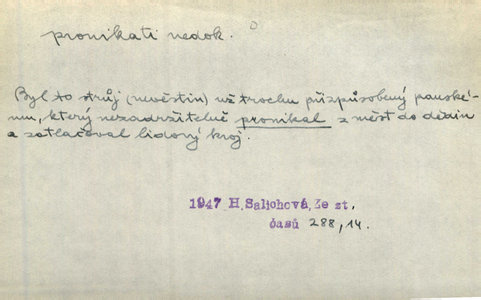 pronikati nedok.
Byl to strůj (nevěstin) už trochu přizpůsobený panské-
mu, který nezadržitelně pronikal z měst do dědin
a zatlačoval lidový kroj.
1947 H. Salichová, Ze st.
časů 288,14.